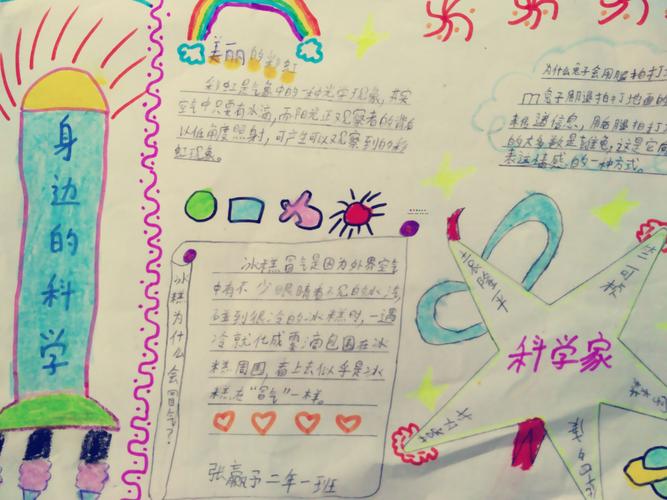 身边的科学
美丽的彩虹
彩虹是气象中的一种光学现象,其实
空气中只要有水滴,而阳光正观察者的背后
以低角度照射,可产生可以观察到的彩
虹现象。
为什么兔子会用脚拍打
兔子用脚拍打地面的
来传递信息,用脚拍打
的大多数是雄兔,这是它向
表达情感的一种方式。
冰糕为什么会冒气?
冰糕冒气是因为外界空气
中有不少眼睛看不见的水滴
碰到很冷的冰糕时,一遇
冷就化成雾滴包围在冰
糕周围,看上去似乎是冰
糕在“冒气”一样。
张赢予二年一班
科学家
袁隆平
竺可桢